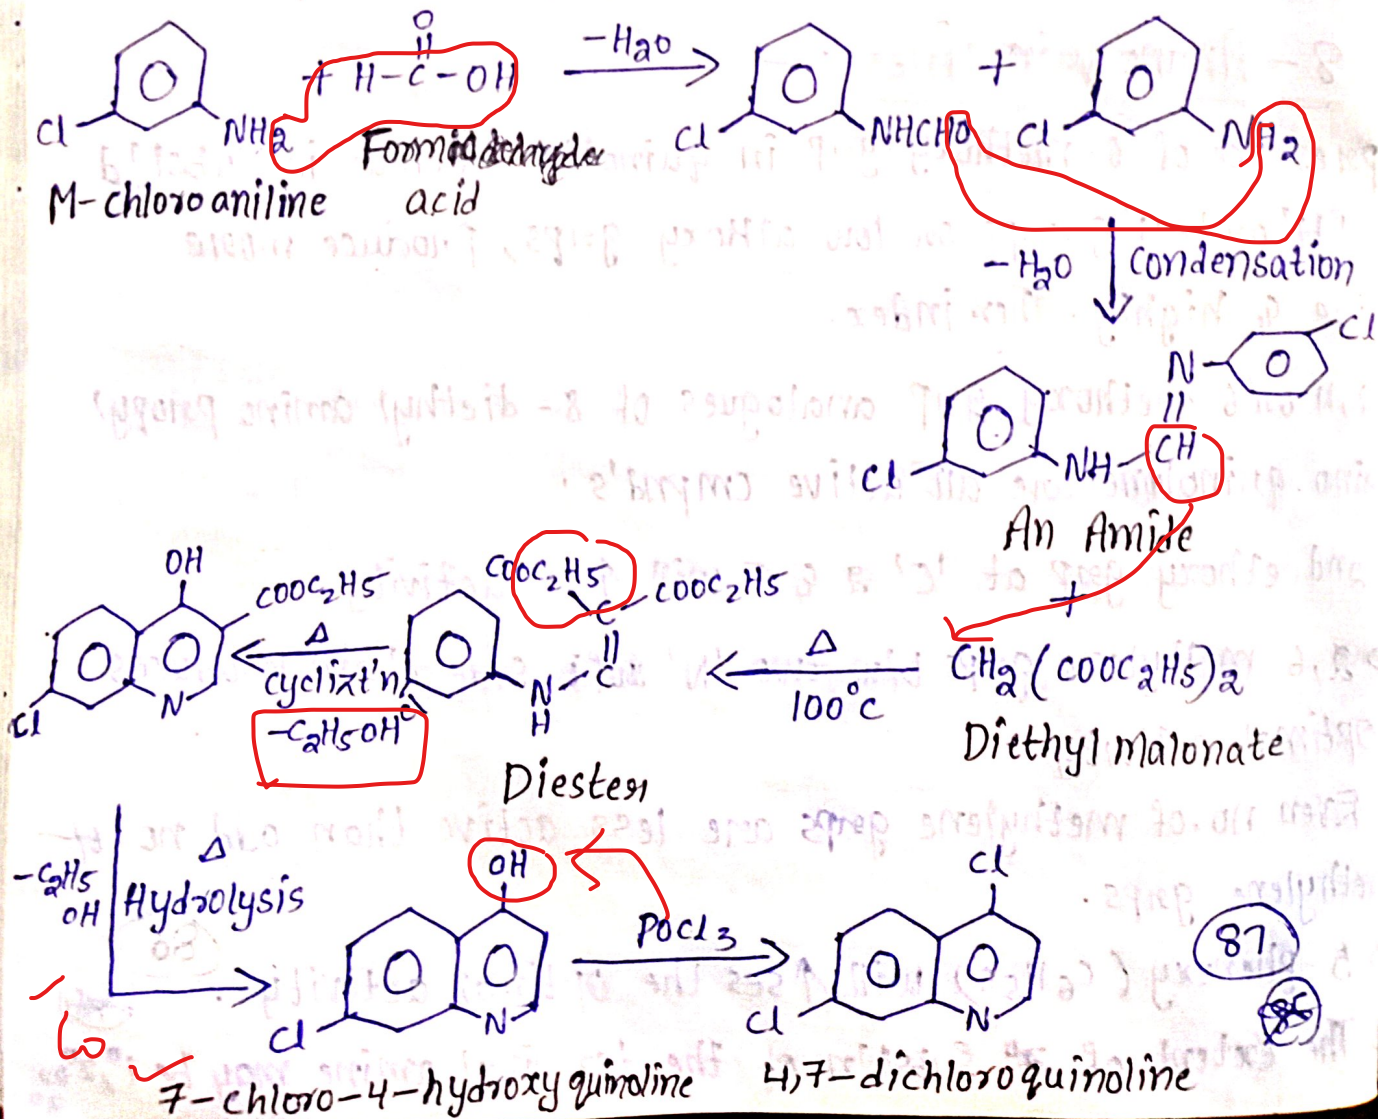 O
+ H-C-OH
-H2O
+
Cl
NH2
Cl
NHCHO
Cl
NH2
M-chloroaniline
acid
-H2O
Condensation
N
Cl
Cl
NH
CH
An Amide
+
CH2(COOC2H5)2
Diethyl malonate
Δ
100°C
COOC2H5
C
COOC2H5
C
N
H
Diester
Δ
cyclizt'n
-C2H5OH
OH
COOC2H5
N
Cl
-C2H5
OH
Δ
Hydrolysis
OH
N
Cl
7-chloro-4-hydroxyquinoline
POCl3
Cl
N
Cl
4,7-dichloroquinoline
87